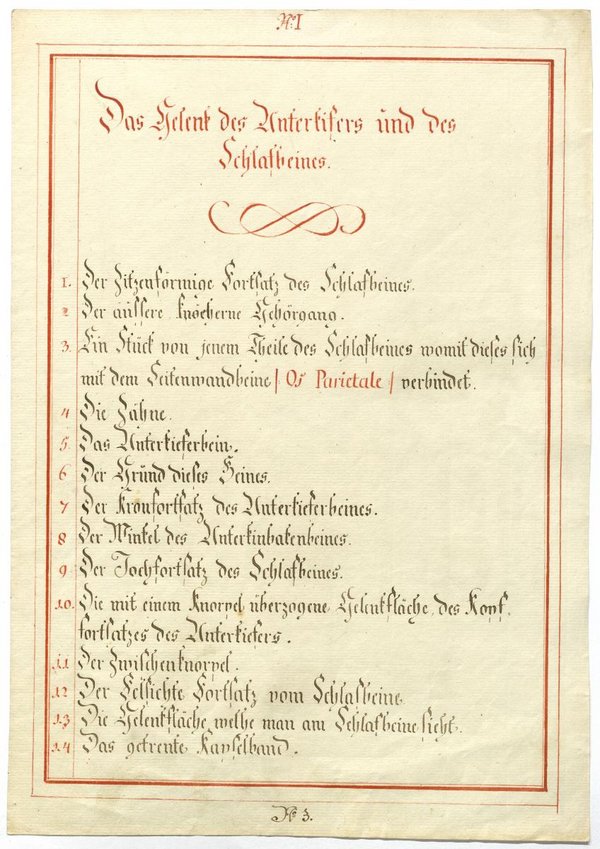 No I
Das Gelenk des Unterkifers und des
Schlafbeines.
1. Der Zitzenförmige Fortsatz des Schlafbeines.
2 Der äussere knöcherne Gehörgang.
3. Ein Stück von jenem Theile des Schlafbeines womit dieses sich
mit dem Seitenwandbeine / Os Parietale / verbindet.
4 Die Zähne.
5. Das Unterkieferbein.
6 Der Grund dieses Beines.
7 Der Kronfortsatz des Unterkieferbeines.
8 Der Winkel des Unterkinbakenbeines.
9 Der Jochfortsatz des Schlafbeines.
10. Die mit einem Knorpel überzogene Gelenkfläche des Kopf,
fortsatzes des Unterkiefers.
11 Der Zwischenknorpel.
12 Der Felsichte Fortsatz vom Schlafbeine
13 Die Gelenkfläche welhe man am Schlafbeine sieht.
14 Das getrente Kapselband.
No 3.